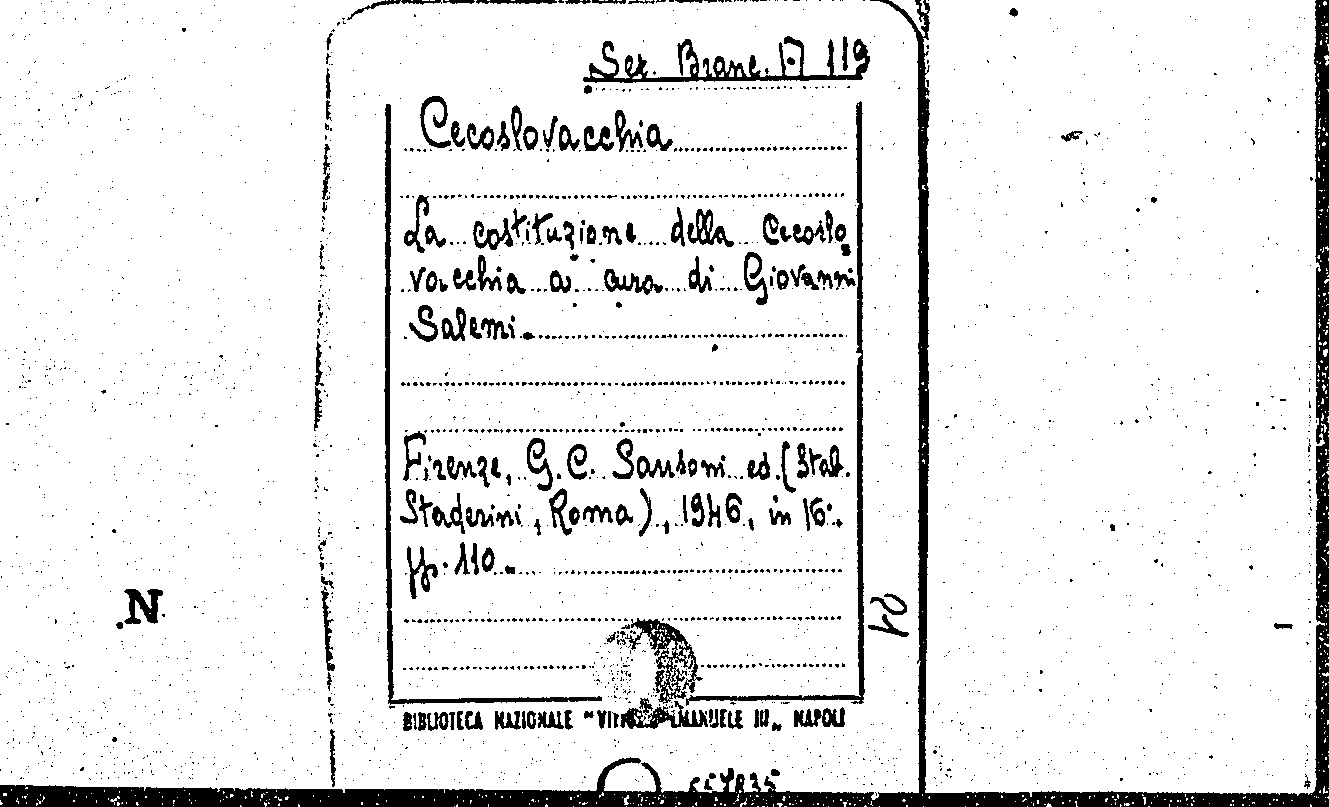 Sez. Branc. A 119
Cecoslovacchia
La costituzione della Cecoslo
vacchia a cura di Giovanni
Salemi.
Firenze, G. C. Sansoni ed. (Stab.
Staderini, Roma), 1946, in 16°.
pp. 110.
N
BIBLIOTECA NAZIONALE "VITTORIO EMANUELE III" NAPOLI